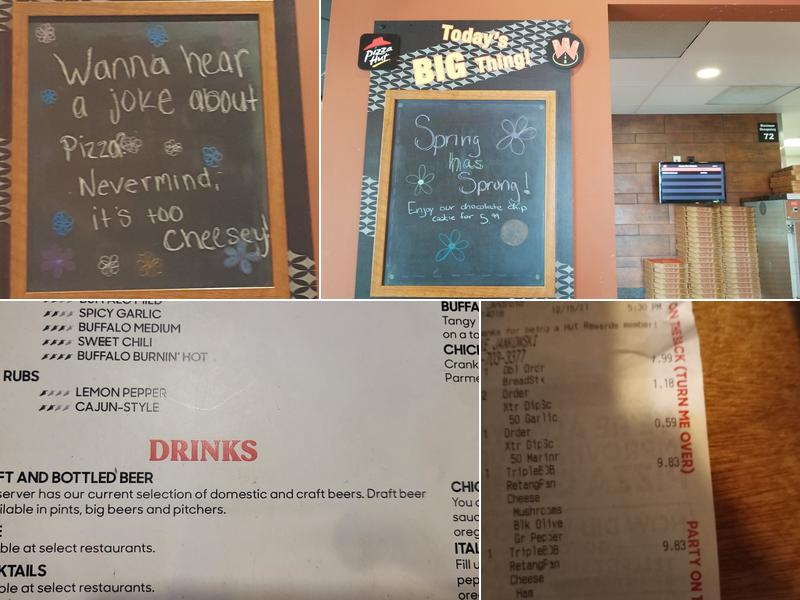 Wanna hear
a joke about
Pizza?
Nevermind,
it's too
cheesey!
Pizza
Hut
Today's
BIG Thing!
W
Spring
has
Sprung!
Enjoy our chocolate chip
cookie for 5.99
Maximum
Occupancy
72
BUFFALO MILD
SPICY GARLIC
BUFFALO MEDIUM
SWEET CHILI
BUFFALO BURNIN' HOT
RUBS
LEMON PEPPER
CAJUN-STYLE
DRINKS
FT AND BOTTLED BEER
server has our current selection of domestic and craft beers. Draft beer
ilable in pints, big beers and pitchers.
E
ble at select restaurants.
KTAILS
ble at select restaurants.
BUFFA
Tangy
on a to
CHIC
Crank
Parme
CHIC
You c
sauc
oreg
ITAL
Fill u
pep
ore
12/15/21 5:30 PM
anks for being a Hut Rewards member!
JANKOWSKI
-703-3377
1 Dbl Ordr 7.99
BreadStk
2 Order 1.18
Xtr DipSc
50 Garlic
1 Order 0.59
Xtr DipSc
50 Marinr
1 TripleBOB 9.83
RetangPan
Cheese
Mushrooms
Blk Olive
Gr Pepper
1 TripleBOB 9.83
RetangPan
Cheese
Ham
ON THE BACK (TURN ME OVER)
PARTY ON T